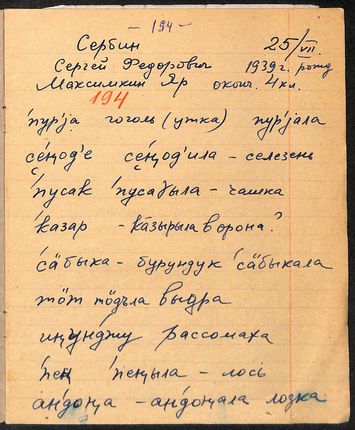 - 194 -
Сербин 25/VII.
Сергей Федорович 1939г. рожд
Максимкин Яр оконч. 4 кл.
194
'пур'jа гоголь (утка) пур'jала
се́ӊод'е се́ӊод'ила - селезень
'пусаk 'пусаɣыла - чашка
'kазар - kа́зырыла ворона?
'сӓбыка - бурундук 'сӓбыкала
тӧт тӧдъла выдра
иӊу́нджу россомаха
'пеӊ 'пеӊыла - лось
ан'доӊа - ан'доӊала лодка